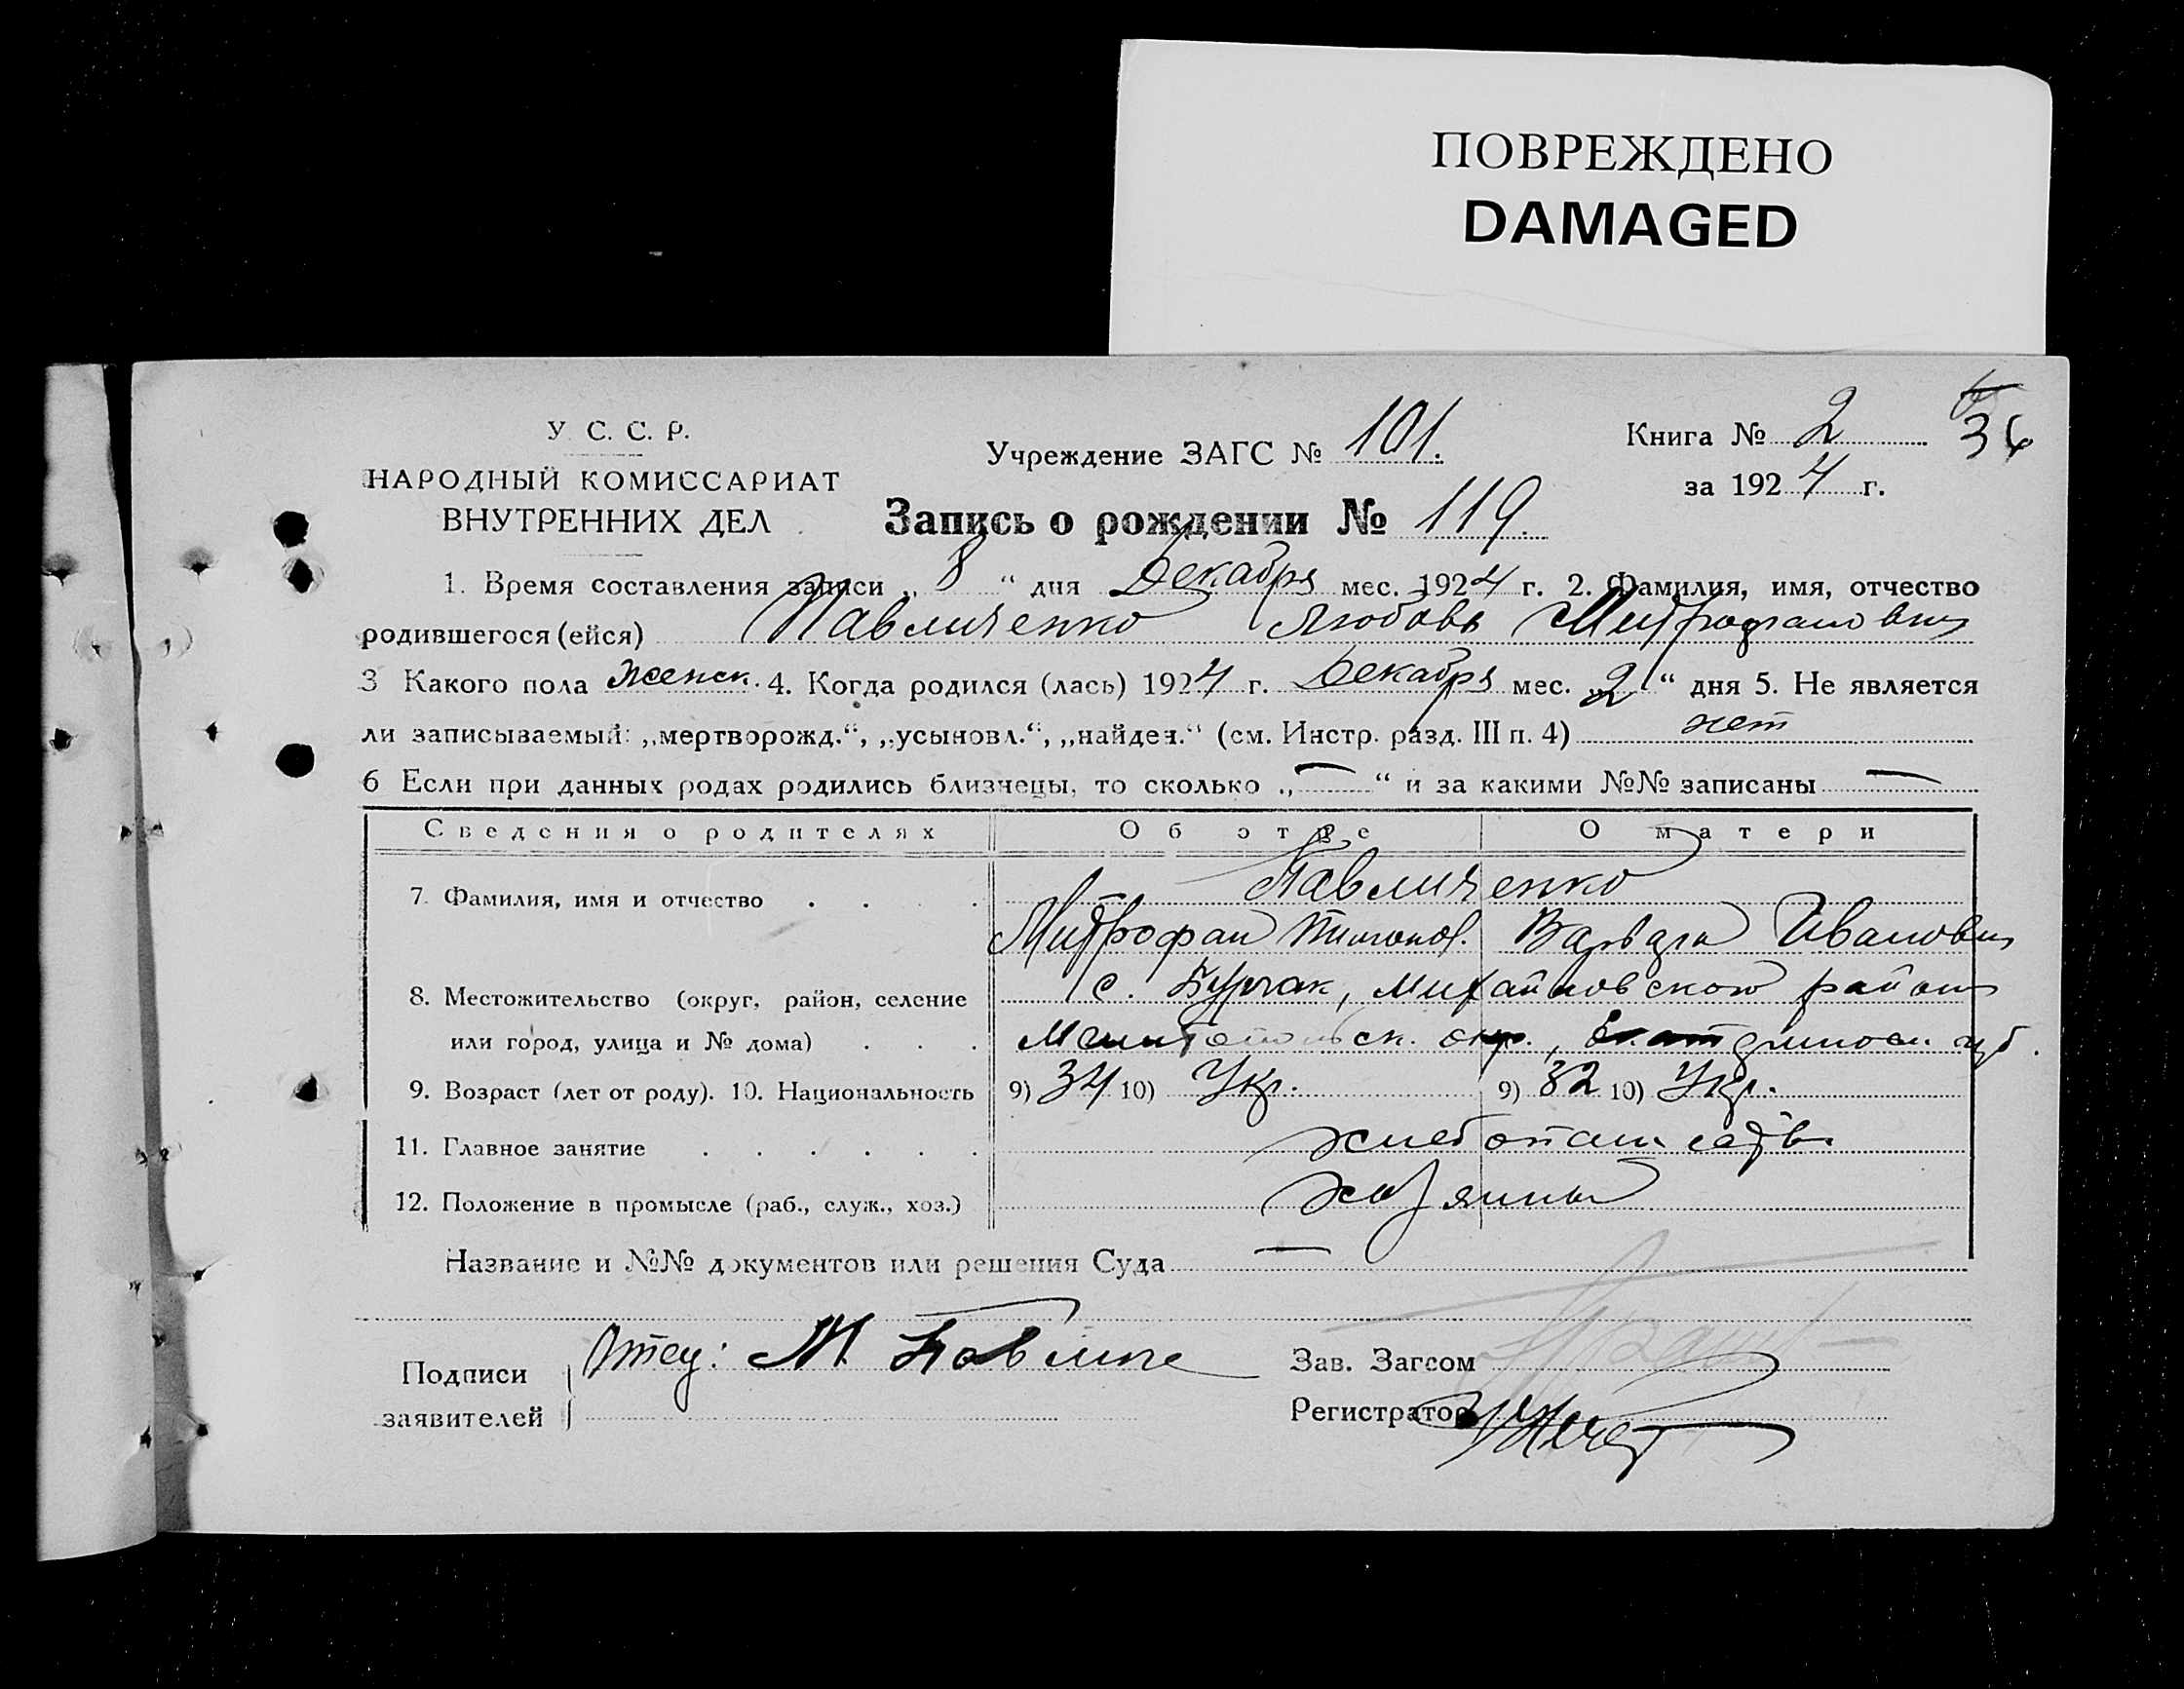 ПОВРЕЖДЕНО
DAMAGED
У. С. С. Р.
НАРОДНЫЙ КОМИССАРИАТ
ВНУТРЕННИХ ДЕЛ
Учреждение ЗАГС № 101.
Книга № 2
36
за 1924 г.
Запись о рождении № 119.
1. Время составления записи „ 8 “ дня Декабря мес. 1924 г. 2. Фамилия, имя, отчество
родившегося (ейся) Павличенко Любовь Митрофановна
3 Какого пола женск. 4. Когда родился (лась) 1924 г. Декабря мес. „2“ дня 5. Не является
ли записываемый: „мертворожд.“, „усыновл.“, „найден.“ (см. Инстр. разд. III п. 4) нет
6 Если при данных родах родились близнецы, то сколько „ — “ и за какими №№ записаны —
Сведения о родителях Об отце О матери
7. Фамилия, имя и отчество Павличенко
Митрофан Варвара Ивановна
8. Местожительство (округ, район, селение с. Бурчак, Михайловского района
или город, улица и № дома) Мелитопольск. окр., Екатеринос. губ.
9. Возраст (лет от роду). 10. Национальность 9) 34 10) Укр. 9) 32 10) Укр.
11. Главное занятие хлебопашество
12. Положение в промысле (раб., служ., хоз.) хозяины
Название и №№ документов или решения Суда —
Подписи
заявителей
Отец: М Павличе
Зав. Загсом
Регистратор